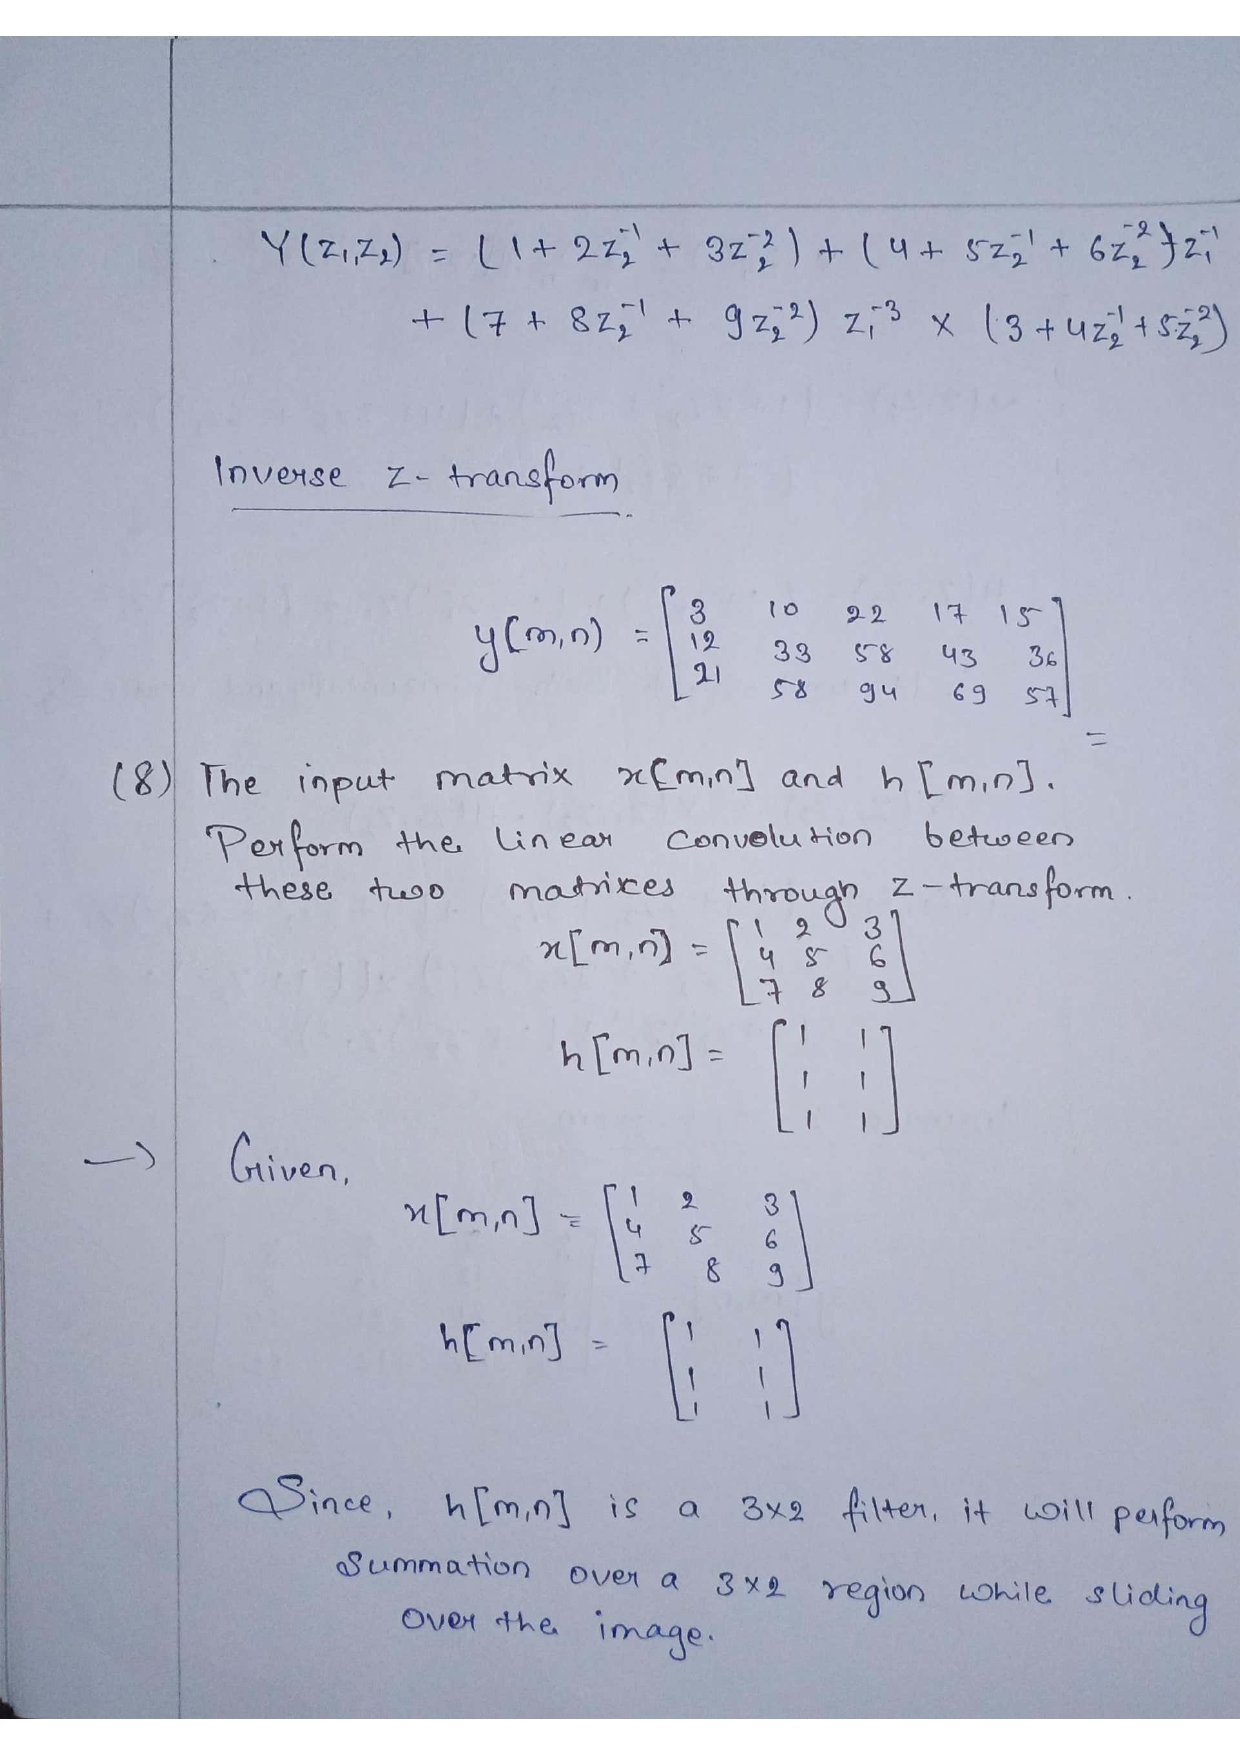 Y(z₁,z₂) = (1 + 2z₂⁻¹ + 3z₂⁻²) + (4 + 5z₂⁻¹ + 6z₂⁻²)z₁⁻¹
+ (7 + 8z₂⁻¹ + 9z₂⁻²) z₁⁻³ × (3 + 4z₂⁻¹ + 5z₂⁻²)
Inverse z-transform
y(m,n) = [3 10 22 17 15
12 33 58 43 36
21 58 94 69 57]
=
(8) The input matrix x[m,n] and h[m,n].
Perform the linear convolution between
these two matrixes through z-transform.
x[m,n] = [1 2 3
4 5 6
7 8 9]
h[m,n] = [1 1
1 1
1 1]
→ Given,
x[m,n] = [1 2 3
4 5 6
7 8 9]
h[m,n] = [1 1
1 1
1 1]
Since, h[m,n] is a 3×2 filter, it will perform
summation over a 3×2 region while sliding
over the image.